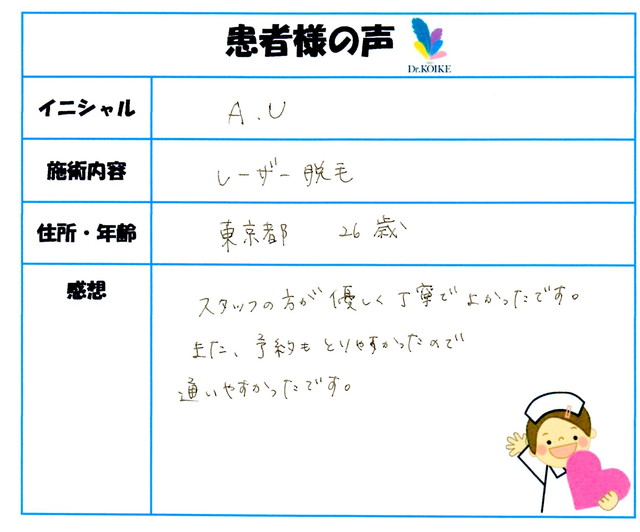 患者様の声
Dr.KOIKE
イニシャル
A.U
施術内容
レーザー脱毛
住所・年齢
東京都 26歳
感想
スタッフの方が優しく丁寧でよかったです。
また、予約もとりやすかったので
通いやすかったです。